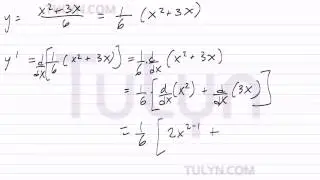 TULYN.COM
y = \frac{x^2+3x}{6} = \frac{1}{6} (x^2+3x)
y' = \frac{d}{dx}[\frac{1}{6}(x^2+3x)] = \frac{1}{6} \frac{d}{dx} (x^2+3x)
= \frac{1}{6} [\frac{d}{dx}(x^2) + \frac{d}{dx}(3x)]
Tulyn
= \frac{1}{6} [2x^{2-1} +
TULYN.COM